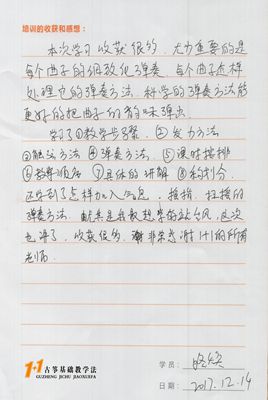 培训的收获和感想：
本次学习收获很多，尤为重要的是
每个曲子的细致化弹奏，每个曲子怎样
处理它的弹奏方法，科学的弹奏方法能
更好的把曲子的韵味弹出。
学了①教学步骤，②发力方法
③触弦方法④弹奏方法⑤课时安排
⑥指导语言⑦具体的讲解⑧
还学到了怎样加入气息，摇指，扫摇的
弹奏方法，尤其是我最想学的站台风，这次
也得了，收获很多，非常感谢1+1的所有
老师。
1+1古筝基础教学法
GUZHENG JICHU JIAOXUEFA
学员：
日期：2017.12.14